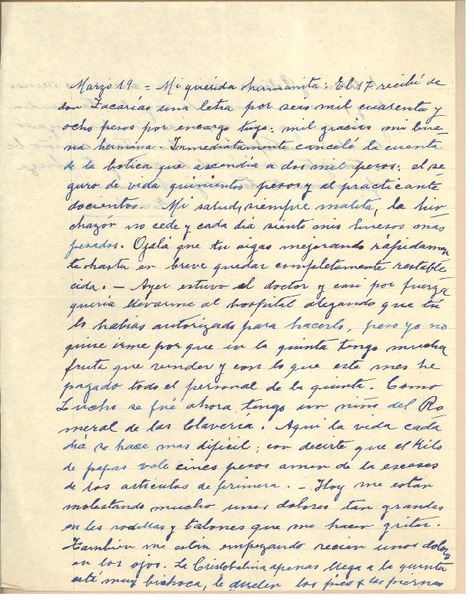 Marzo 19 = Mi querida hermanita: El 17 recibí de
don Zacarías una letra por seis mil cuarenta y
ocho pesos por encargo tuyo: mil gracias mi bue
na hermana. Inmediatamente cancelé la cuenta
de la botica que ascendía a dos mil pesos: el se
guro de vida quinientos pesos y el practicante
docientos. Mi salud, siempre malita, la hin
chazón no cede y cada día siento mis huesos mas
pesados. Ojalá que tu sigas mejorando rápidamen
te hasta en breve quedar completamente restable
cida. — Ayer estuvo el doctor y casi por fuerza
quería llevarme al hospital alegando que tú
lo habías autorizado para hacerlo, pero yo no
quise irme por que en la quinta tengo mucha
fruta que vender y con lo que este mes he
pagado todo el personal de la quinta. Como
Lucho se fué ahora tengo un niño del Ro
meral de las Claveria. Aquí la vida cada
día se hace mas difícil; con decirte que el Kilo
de papas vale cinco pesos amen de la escases
de los artículos de primera. — Hoy me estan
molestando mucho unos dolores tan grandes
en las rodillas y talones que me hacen gritar.
Tambien me están empezando recien unos dolores
en los ojos. La Cristobalina apenas llega a la quinta
está muy bichoca, le duelen los pies y las piernas